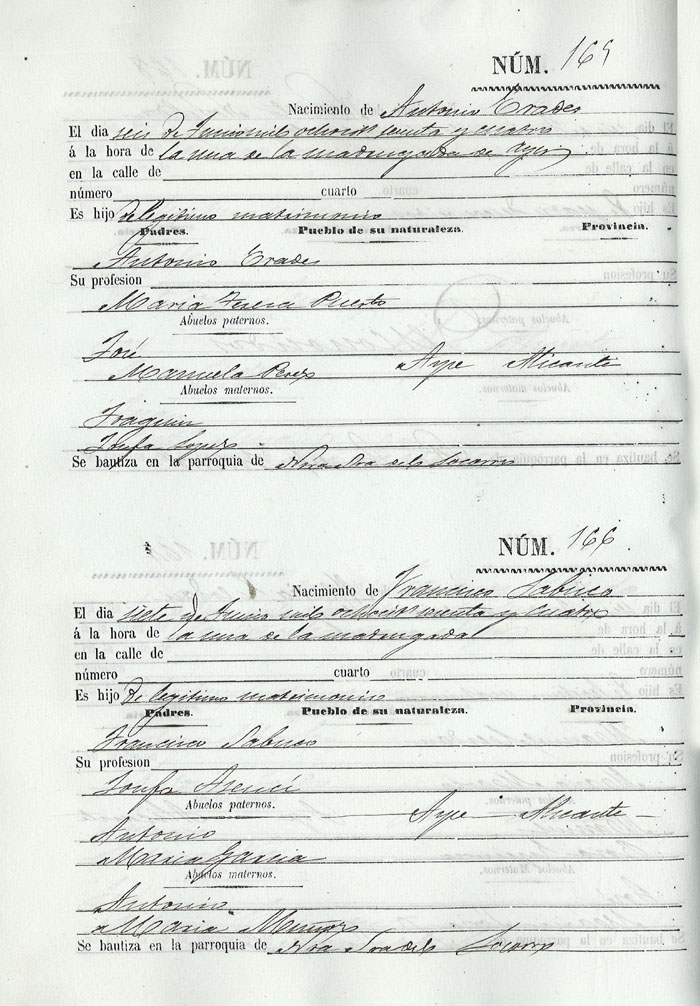 NÚM. 165
Nacimiento de Antonio Erades
El dia seis de Junio mil ochoc.tos senta y cuatro
á la hora de la una de la madrugada de ayer
en la calle de
número cuarto
Es hijo de legitimo matrimonio
Padres. Pueblo de su naturaleza. Provincia.
Antonio Erades
Su profesion
Maria Teresa Puerto
Abuelos paternos.
José
Manuela Perez Aspe Alicante
Abuelos maternos.
Joaquin
Josefa Lopez
Se bautiza en la parroquia de Ntra Sra del Socorro
NÚM. 166
Nacimiento de Francisco Sabuco
El dia siete de Junio mil ochoc.tos senta y cuatro
á la hora de la una de la madrugada
en la calle de
número cuarto
Es hijo de legitimo matrimonio
Padres. Pueblo de su naturaleza. Provincia.
Francisco Sabuco
Su profesion
Josefa
Abuelos paternos. Aspe Alicante
Antonio
Maria Garcia
Abuelos maternos.
Antonio
Maria Muñoz
Se bautiza en la parroquia de Ntra Sra del Socorro